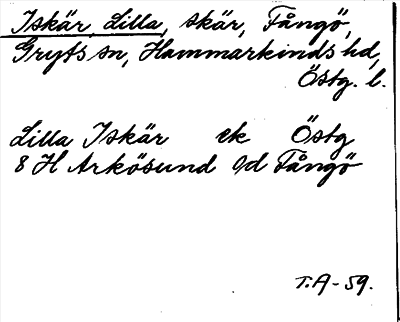 Iskär, Lilla, skär, Fångö,
Gryts sn, Hammarkinds hd,
Östg. l.
Lilla Iskär ek Östg
8 H Arkösund o/d Fångö
T.A-59.